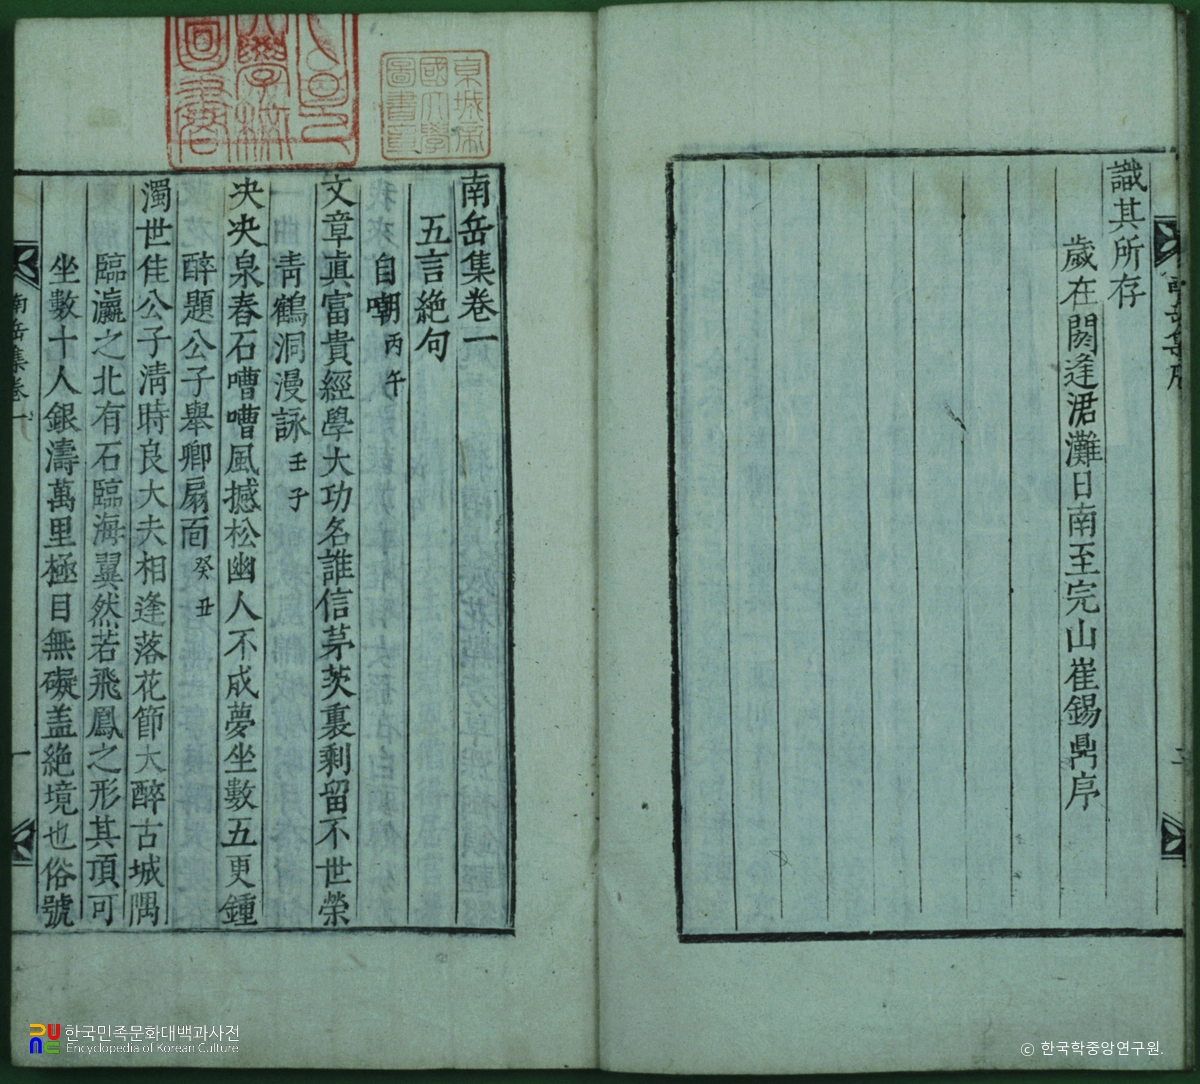 識其所存
歲在閼逢涒灘日南至完山崔錫鼎序
南岳集卷一
五言絶句
自嘲 丙午
文章眞富貴經學大功名誰信茅茨裏剩留不世榮
靑鶴洞漫詠 壬子
央央泉舂石嘈嘈風撼松幽人不成夢坐數五更鍾
醉題公子擧卿扇面 癸丑
濁世佳公子淸時良大夫相逢落花節大醉古城隅
臨瀛之北有石臨海翼然若飛鳳之形其頂可
坐數十人銀濤萬里極目無礙盖絶境也俗號
南岳集卷一
一
京城帝
國大學
圖書章
한국민족문화대백과사전
Encyclopedia of Korean Culture
© 한국학중앙연구원.